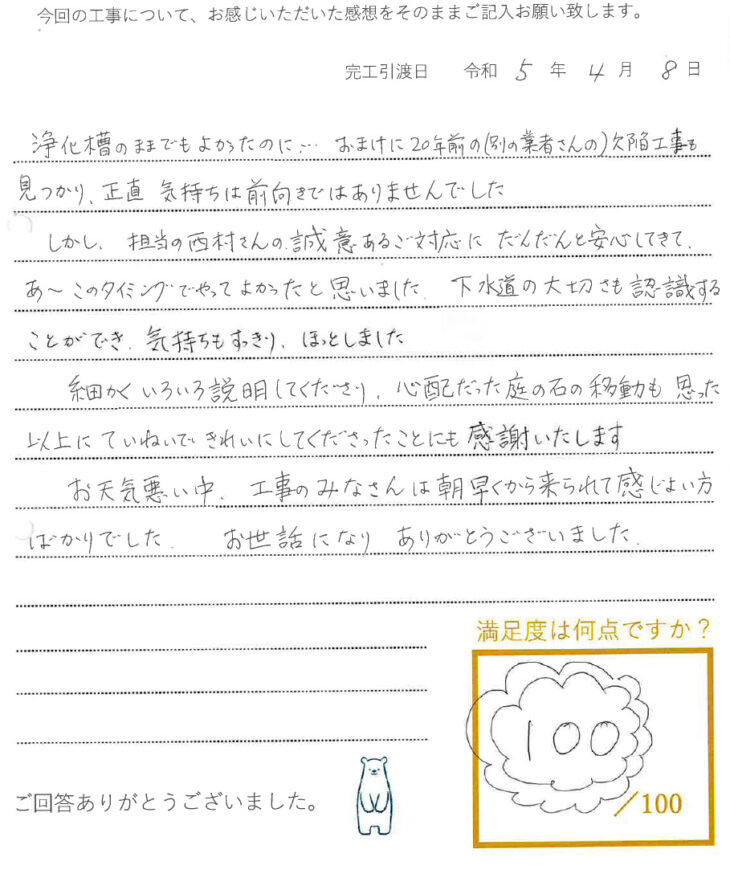 今回の工事について、お感じいただいた感想をそのままご記入お願い致します。
完工引渡日 令和 5 年 4 月 8 日
浄化槽のままでもよかったのに… おまけに20年前の(別の業者さんの)欠陥工事も
見つかり、正直 気持ちは前向きではありませんでした
しかし、担当の西村さんの誠意あるご対応に だんだんと安心してきて、
あ〜このタイミングでやってよかったと思いました、下水道の大切さも認識する
ことができ、気持ちもすっきり、ほっとしました
細かくいろいろ説明してくださり、心配だった庭の石の移動も思った
以上にていねいできれいにしてくださったことにも感謝いたします
お天気悪い中、工事のみなさんは朝早くから来られて感じよい方
ばかりでした、 お世話になり ありがとうございました、
満足度は何点ですか？
100
／100
ご回答ありがとうございました。